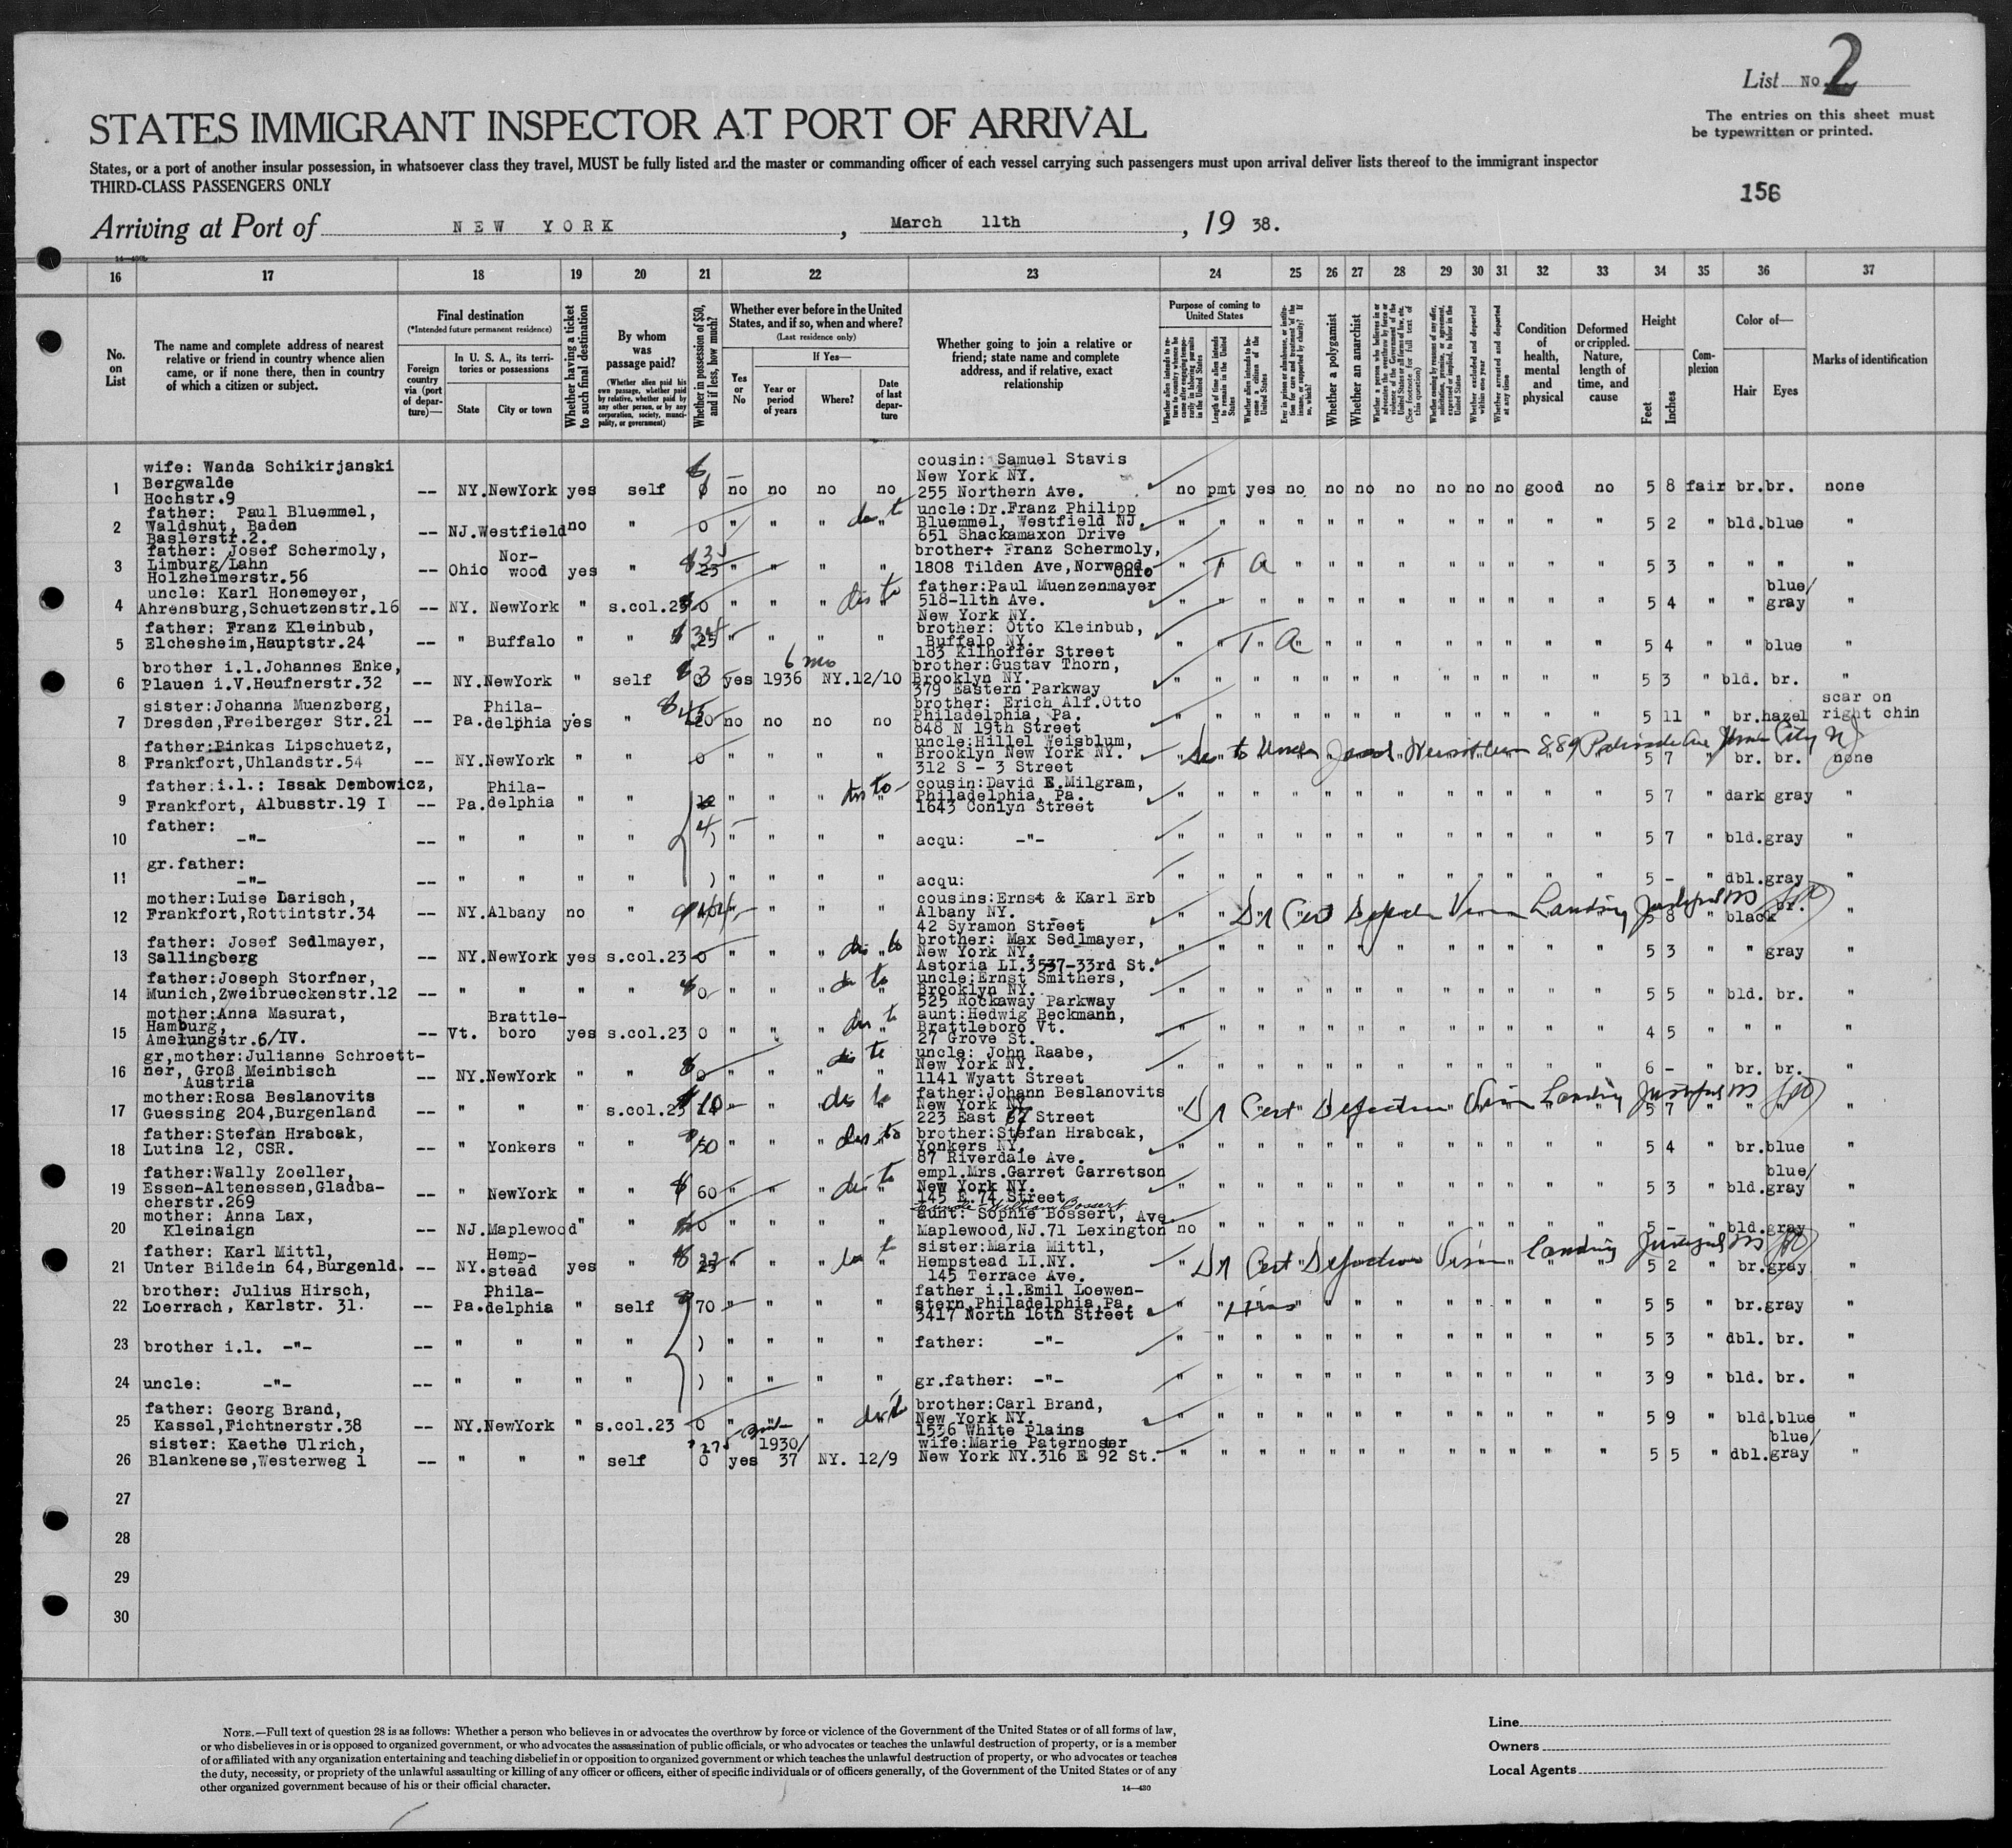 List No. 2
The entries on this sheet must
be typewritten or printed.
STATES IMMIGRANT INSPECTOR AT PORT OF ARRIVAL
States, or a port of another insular possession, in whatsoever class they travel, MUST be fully listed and the master or commanding officer of each vessel carrying such passengers must upon arrival deliver lists thereof to the immigrant inspector
THIRD-CLASS PASSENGERS ONLY
156
Arriving at Port of NEW YORK, March 11th, 19 38.
16 17 18 19 20 21 22 23 24 25 26 27 28 29 30 31 32 33 34 35 36 37
No. on List
The name and complete address of nearest relative or friend in country whence alien came, or if none there, then in country of which a citizen or subject.
Final destination
(*Intended future permanent residence)
Foreign country via (port of departure)—
In U. S. A., its territories or possessions
State
City or town
Whether having a ticket to such final destination
By whom was passage paid?
(Whether alien paid his own passage, whether paid by relative, whether paid by any other person, or by any corporation, society, municipality, or government)
Whether in possession of $50, and if less, how much?
Whether ever before in the United States, and if so, when and where?
(Last residence only)
Yes or No
If Yes—
Year or period of years
Where?
Date of last departure
Whether going to join a relative or friend; state name and complete address, and if relative, exact relationship
Purpose of coming to United States
Length of time alien intends to remain in the United States
Whether alien intends to become a citizen of the United States
Whether a polygamist
Whether an anarchist
(See footnote for full text of this question)
Whether excluded and deported within one year
Whether arrested and deported at any time
Condition of health, mental and physical
Deformed or crippled. Nature, length of time, and cause
Height
Feet
Inches
Complexion
Color of—
Hair
Eyes
Marks of identification
1 wife: Wanda Schikirjanski
Bergwalde
Hochstr.9 -- NY. NewYork yes self no no no no
cousin: Samuel Stavis
New York NY.
255 Northern Ave. no pmt yes no no no no no no no good no 5 8 fair br. br. none
2 father: Paul Bluemmel,
Waldshut, Baden
Baslerstr.2. -- NJ. Westfield no " 0 " " " "
uncle: Dr.Franz Philipp
Bluemmel, Westfield NJ.
651 Shackamaxon Drive " " " " " " " " " " " " 5 2 " bld. blue "
3 father: Josef Schermoly,
Limburg/Lahn
Holzheimerstr.56 -- Ohio Norwood yes " 25 " " " "
brother: Franz Schermoly,
1808 Tilden Ave, Norwood Ohio " T a " " " " " " " " " 5 3 " " " "
4 uncle: Karl Honemeyer,
Ahrensburg, Schuetzenstr.16 -- NY. NewYork " s.col.23 0 " " " "
father: Paul Muenzenmayer
518-11th Ave.
New York NY. " " " " " " " " " " " " 5 4 " " blue/gray "
5 father: Franz Kleinbub,
Elchesheim, Hauptstr.24 -- " Buffalo " " 25 " " " "
brother: Otto Kleinbub,
Buffalo NY.
183 Kilhoffer Street " T a " " " " " " " " " 5 4 " " blue "
6 brother i.l. Johannes Enke,
Plauen i.V. Heufnerstr.32 -- NY. NewYork " self yes 6 mo 1936 NY. 12/10
brother: Gustav Thorn,
Brooklyn NY.
379 Eastern Parkway " " " " " " " " " " " " 5 3 " bld. br. "
7 sister: Johanna Muenzberg,
Dresden, Freiberger Str.21 -- Pa. Philadelphia yes " no no no no
brother: Erich Alf.Otto
Philadelphia, Pa.
848 N 19th Street " " " " " " " " " " " " 5 11 " br. hazel scar on right chin
8 father: Pinkas Lipschuetz,
Frankfort, Uhlandstr.54 -- NY. NewYork " " 0 " " " "
uncle: Hillel Weisblum,
Brooklyn New York NY.
312 S - 3 Street 5 7 " br. br. none
9 father i.l.: Issak Dembowicz,
Frankfort, Albusstr.19 I -- Pa. Philadelphia " " " " " "
cousin: David E. Milgram,
Philadelphia, Pa.
1643 Conlyn Street " " " " " " " " " " " " 5 7 " dark gray "
10 father:
-"- -- " " " " ) " " " "
acqu: -"- " " " " " " " " " " " " 5 7 " bld. gray "
11 gr.father:
-"- -- " " " " ) " " " "
acqu: " " " " " " " " " " " " 5 - " dbl. gray "
12 mother: Luise Darisch,
Frankfort, Rottintstr.34 -- NY. Albany no " " " " "
cousins: Ernst & Karl Erb
Albany NY.
42 Syramon Street 5 8 " black br. "
13 father: Josef Sedlmayer,
Sallingberg -- NY. NewYork yes s.col.23 0 " " " "
brother: Max Sedlmayer,
New York NY.
Astoria LI.3537-33rd St. " " " " " " " " " " " " 5 3 " " gray "
14 father: Joseph Storfner,
Munich, Zweibrueckenstr.12 -- " " " " 0 " " " "
uncle: Ernst Smithers,
Brooklyn NY.
525 Rockaway Parkway " " " " " " " " " " " " 5 5 " bld. br. "
15 mother: Anna Masurat,
Hamburg,
Amelungstr.6/IV. -- Vt. Brattleboro yes s.col.23 0 " " " "
aunt: Hedwig Beckmann,
Brattleboro Vt.
27 Grove St. " " " " " " " " " " " " 4 5 " " " "
16 gr,mother: Julianne Schroettner, Groß Meinbisch
Austria -- NY. NewYork " " 0 " " " "
uncle: John Raabe,
New York NY.
1141 Wyatt Street " " " " " " " " " " " " 6 - " br. br. "
17 mother: Rosa Beslanovits
Guessing 204, Burgenland -- " " " s.col.23 " " " "
father: Johann Beslanovits
New York NY.
223 East 67 Street 5 7 " " " "
18 father: Stefan Hrabcak,
Lutina 12, CSR. -- " Yonkers " " 50 " " " "
brother: Stefan Hrabcak,
Yonkers NY.
87 Riverdale Ave. " " " " " " " " " " " " 5 4 " br. blue "
19 father: Wally Zoeller,
Essen-Altenessen, Gladbacherstr.269 -- " NewYork " " 60 " " " "
empl. Mrs.Garret Garretson
New York NY.
145 E. 74 Street " " " " " " " " " " " " 5 3 " bld. blue/gray "
20 mother: Anna Lax,
Kleinaign -- NJ. Maplewood " " 0 " " " "
aunt: Sophie Bossert,
Maplewood, NJ. 71 Lexington Ave no " " " " " " " " " " " 5 - " bld. gray "
21 father: Karl Mittl,
Unter Bildein 64, Burgenld. -- NY. Hempstead yes " " " " "
sister: Maria Mittl,
Hempstead LI.NY.
145 Terrace Ave. 5 2 " br. gray "
22 brother: Julius Hirsch,
Loerrach, Karlstr. 31. -- Pa. Philadelphia " self 70 " " " "
father i.l. Emil Loewenstern, Philadelphia, Pa.
3417 North 16th Street " " " " " " " " " " " 5 5 " br. gray "
23 brother i.l. -"- -- " " " " ) " " " "
father: -"- " " " " " " " " " " " " 5 3 " dbl. br. "
24 uncle: -"- -- " " " " ) " " " "
gr.father: -"- " " " " " " " " " " " " 3 9 " bld. br. "
25 father: Georg Brand,
Kassel, Fichtnerstr.38 -- NY. NewYork " s.col.23 0 " " " "
brother: Carl Brand,
New York NY.
1536 White Plains " " " " " " " " " " " " 5 9 " bld. blue "
26 sister: Kaethe Ulrich,
Blankenese, Westerweg 1 -- " " " self 0 yes 1930/37 NY. 12/9
wife: Marie Paternoster
New York NY. 316 E 92 St. " " " " " " " " " " " " 5 5 " dbl. blue/gray "
27
28
29
30
NOTE.—Full text of question 28 is as follows: Whether a person who believes in or advocates the overthrow by force or violence of the Government of the United States or of all forms of law,
or who disbelieves in or is opposed to organized government, or who advocates the assassination of public officials, or who advocates or teaches the unlawful destruction of property, or is a member
of or affiliated with any organization entertaining and teaching disbelief in or opposition to organized government or which teaches the unlawful destruction of property, or who advocates or teaches
the duty, necessity, or propriety of the unlawful assaulting or killing of any officer or officers, either of specific individuals or of officers generally, of the Government of the United States or of any
other organized government because of his or their official character.
14—430
Line
Owners
Local Agents